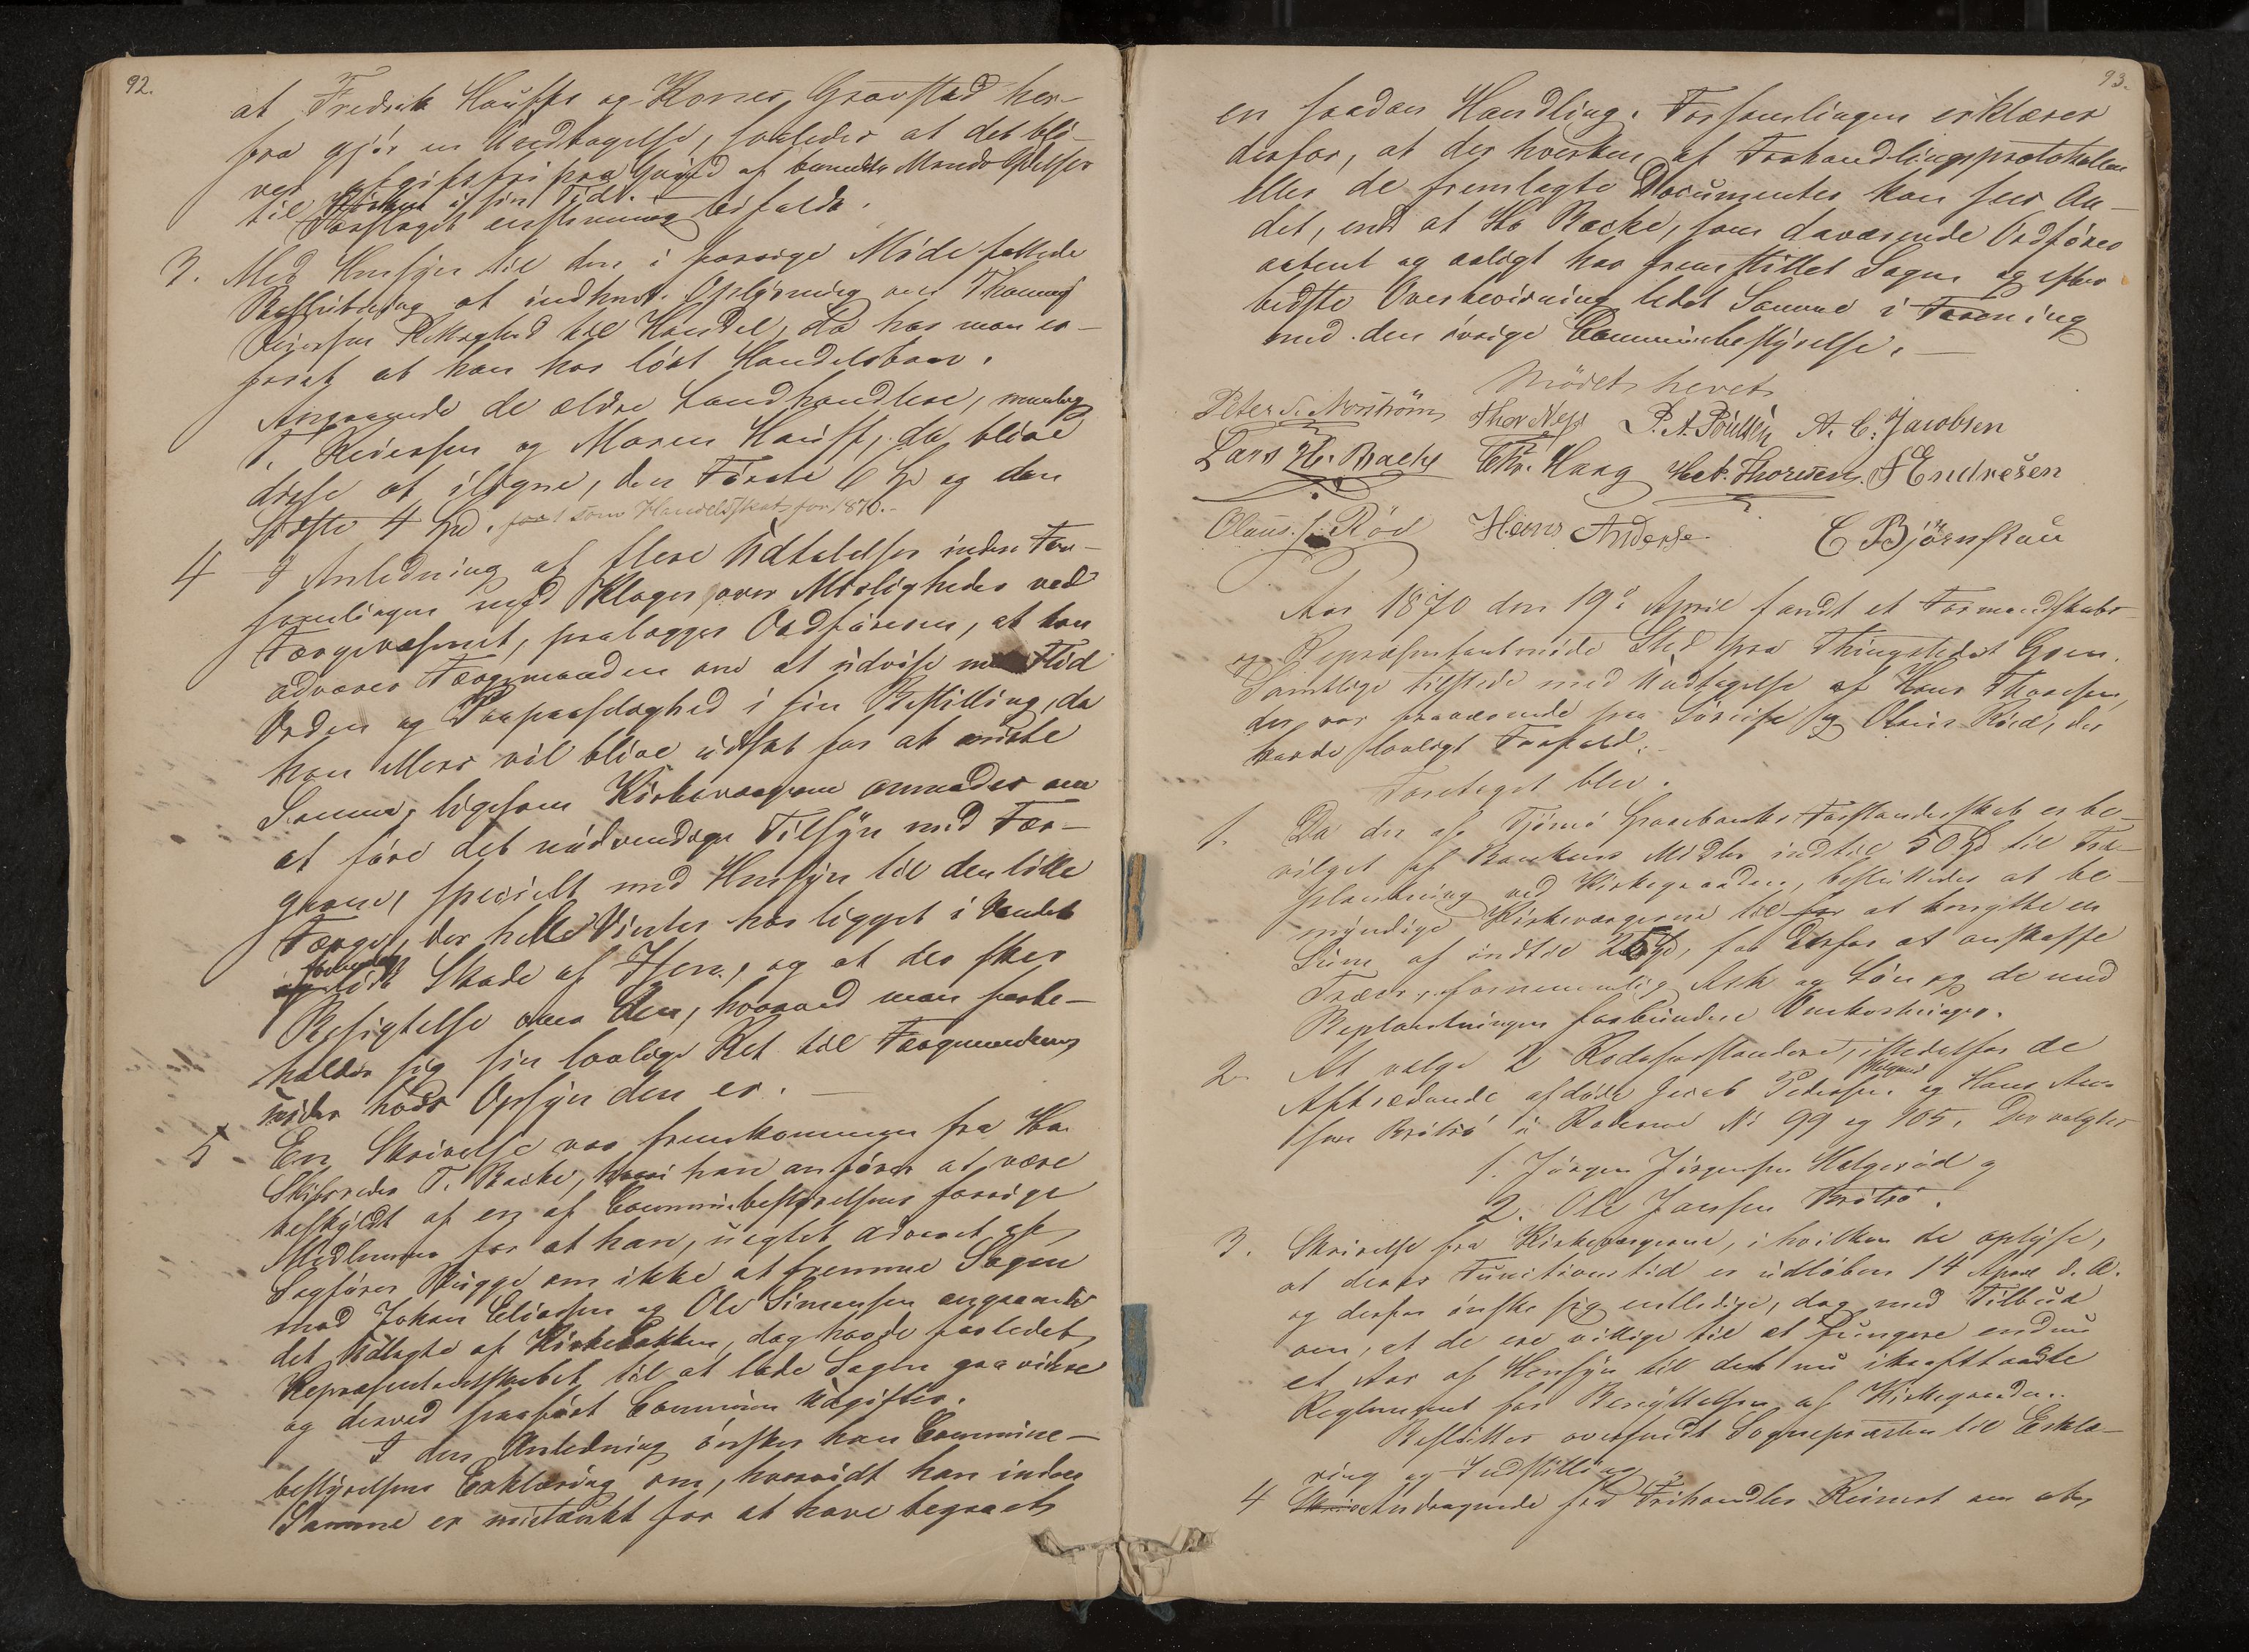 92.
at Fredrik Hauffs og Kones Gravsted her-
fra gjør en Undtagelse, saaledes at det bli-
ver afgiftsfri paa Grund af benævnte Mands Ydelser
til Kirken i sin Tid. —
Forslaget enstemmig bifaldt.
3. Med Hensyn til den i forrige Møde fattede
Beslutning at indhente Oplysning om Thomas
Reiersen Rettighed til Handel, da har man er-
faret at han har løst Handelsbrev.
Angaaende de ældre Landhandlere, nemlig
T. Reiersen og Maren Hauff, da blive
disse at iligne, den Første 6 Spd og den
Sidste 4 Spd. for 1 som Handelsskat for 1870.-
4 I Anledning af flere Udtalelser inden For-
samlingen med Klager over Misligheder ved
Færgevæsenet, paalægges Ordføreren, at han
advarer Færgemanden om at udvise mere Flid
Orden og Paapasselighed i sin Bestilling, da
han ellers vil blive udsat for at miste
Samme, ligesom Kirkeværgerne anmodes om
at føre det nødvendige Tilsyn med Fær-
gerne, specielt med Hensyn til den lille
Færge, der hele Vinter har ligget i Vandet
lidt Skade af Isen, og at der skeer
Besigtelse over den, hvorved man forbe-
holder sig sin lovlige Ret til Færgemanden
under hvis Opsyn den er. —
5 En Skrivelse var fremkommen fra Hr.
Skibsreder T. Bache, hvori han anfører at være
beskyldt af en af Communebestyrelsens forrige
Medlemmer for at han, uagtet advaret af
Sagfører Bugge om ikke at fremme Sagen
mod Johan Eliassen og Ole Simensen angaaende
det Udlagte af Kirkebakken, dog havde forledet
Repræsentantskabet til at lade Sagen gaa videre
og derved paaført Communen Udgifter.
I den Anledning ønsker han Commune-
bestyrelsens Erklæring om, hvorvidt han inden
Samme er mistænkt for at have begaaet
93.
en saadan Handling. Forsamlingen erklærer
derfor, at der hverken af Forhandlingsprotokollen
eller de fremlagte Documenter kan sees An-
det, end at Hr Backe, som daværende Ordfører
aabent og ærligt har fremstillet Sagen og efter
bedste Overbevisning ledet Samme i Forening
med den øvrige Communebestyrelse. —
Mødet hevet
Peter S. Norström Thor Næss P. A. Poulsen A. C. Jacobsen
Lars H. Bache Chr. Haug Het. Thoresen. J Endresen
Olaus. J. Rød Hans Anderse. C Bjørnskau
Aar 1870 den 19de April fandt et Formandskabs-
og Repræsentantmøde Sted paa Thingstedet Gren.
Samtlige tilstede med Undtagelse af Hans Thoresen,
der var fraværende paa Søreise og Olaus Röed, der
havde lovligt Forfald.
Foretaget blev.
1. Da der af Tjømø Sparebanks Forstanderskab er be-
vilget af Bankens Midler indtil 50 Spd til Træ-
plantning ved Kirkegaarden, besluttedes at be-
myndige Kirkeværgerne til at benytte en
Sum af indtil 25 Spd, for derfor at anskaffe
Træer, fornemmelig Ask og Løn og de med
Beplantningen forbundne Omkostninger.
2. At vælge 2 Rodeforstandere, istedetfor de
Aftrædende afdøde Jacob Pedersen og Hans An-
sen Brøtsø i Roderne No 99 og 105. Der valgtes
1. Jørgen Jørgensen Helgerød og
2. Ole Jansen Brøtsø.
3. Skrivelse fra Kirkeværgerne, i hvilken de oplyse,
at deres Functionstid er udløben 14 April d. A.
og derfor ønske sig entledige, dog med Tilbud
om, at de ere villige til at fungere endnu
et Aar af Hensyn til det nu ikrafttraadte
Reglement for Benyttelsen af Kirkegaarden.
Besluttes oversendt Sognepræsten til Erklæ-
ring og Indstilling
4 Andragende fra Frihandler Reimert om at